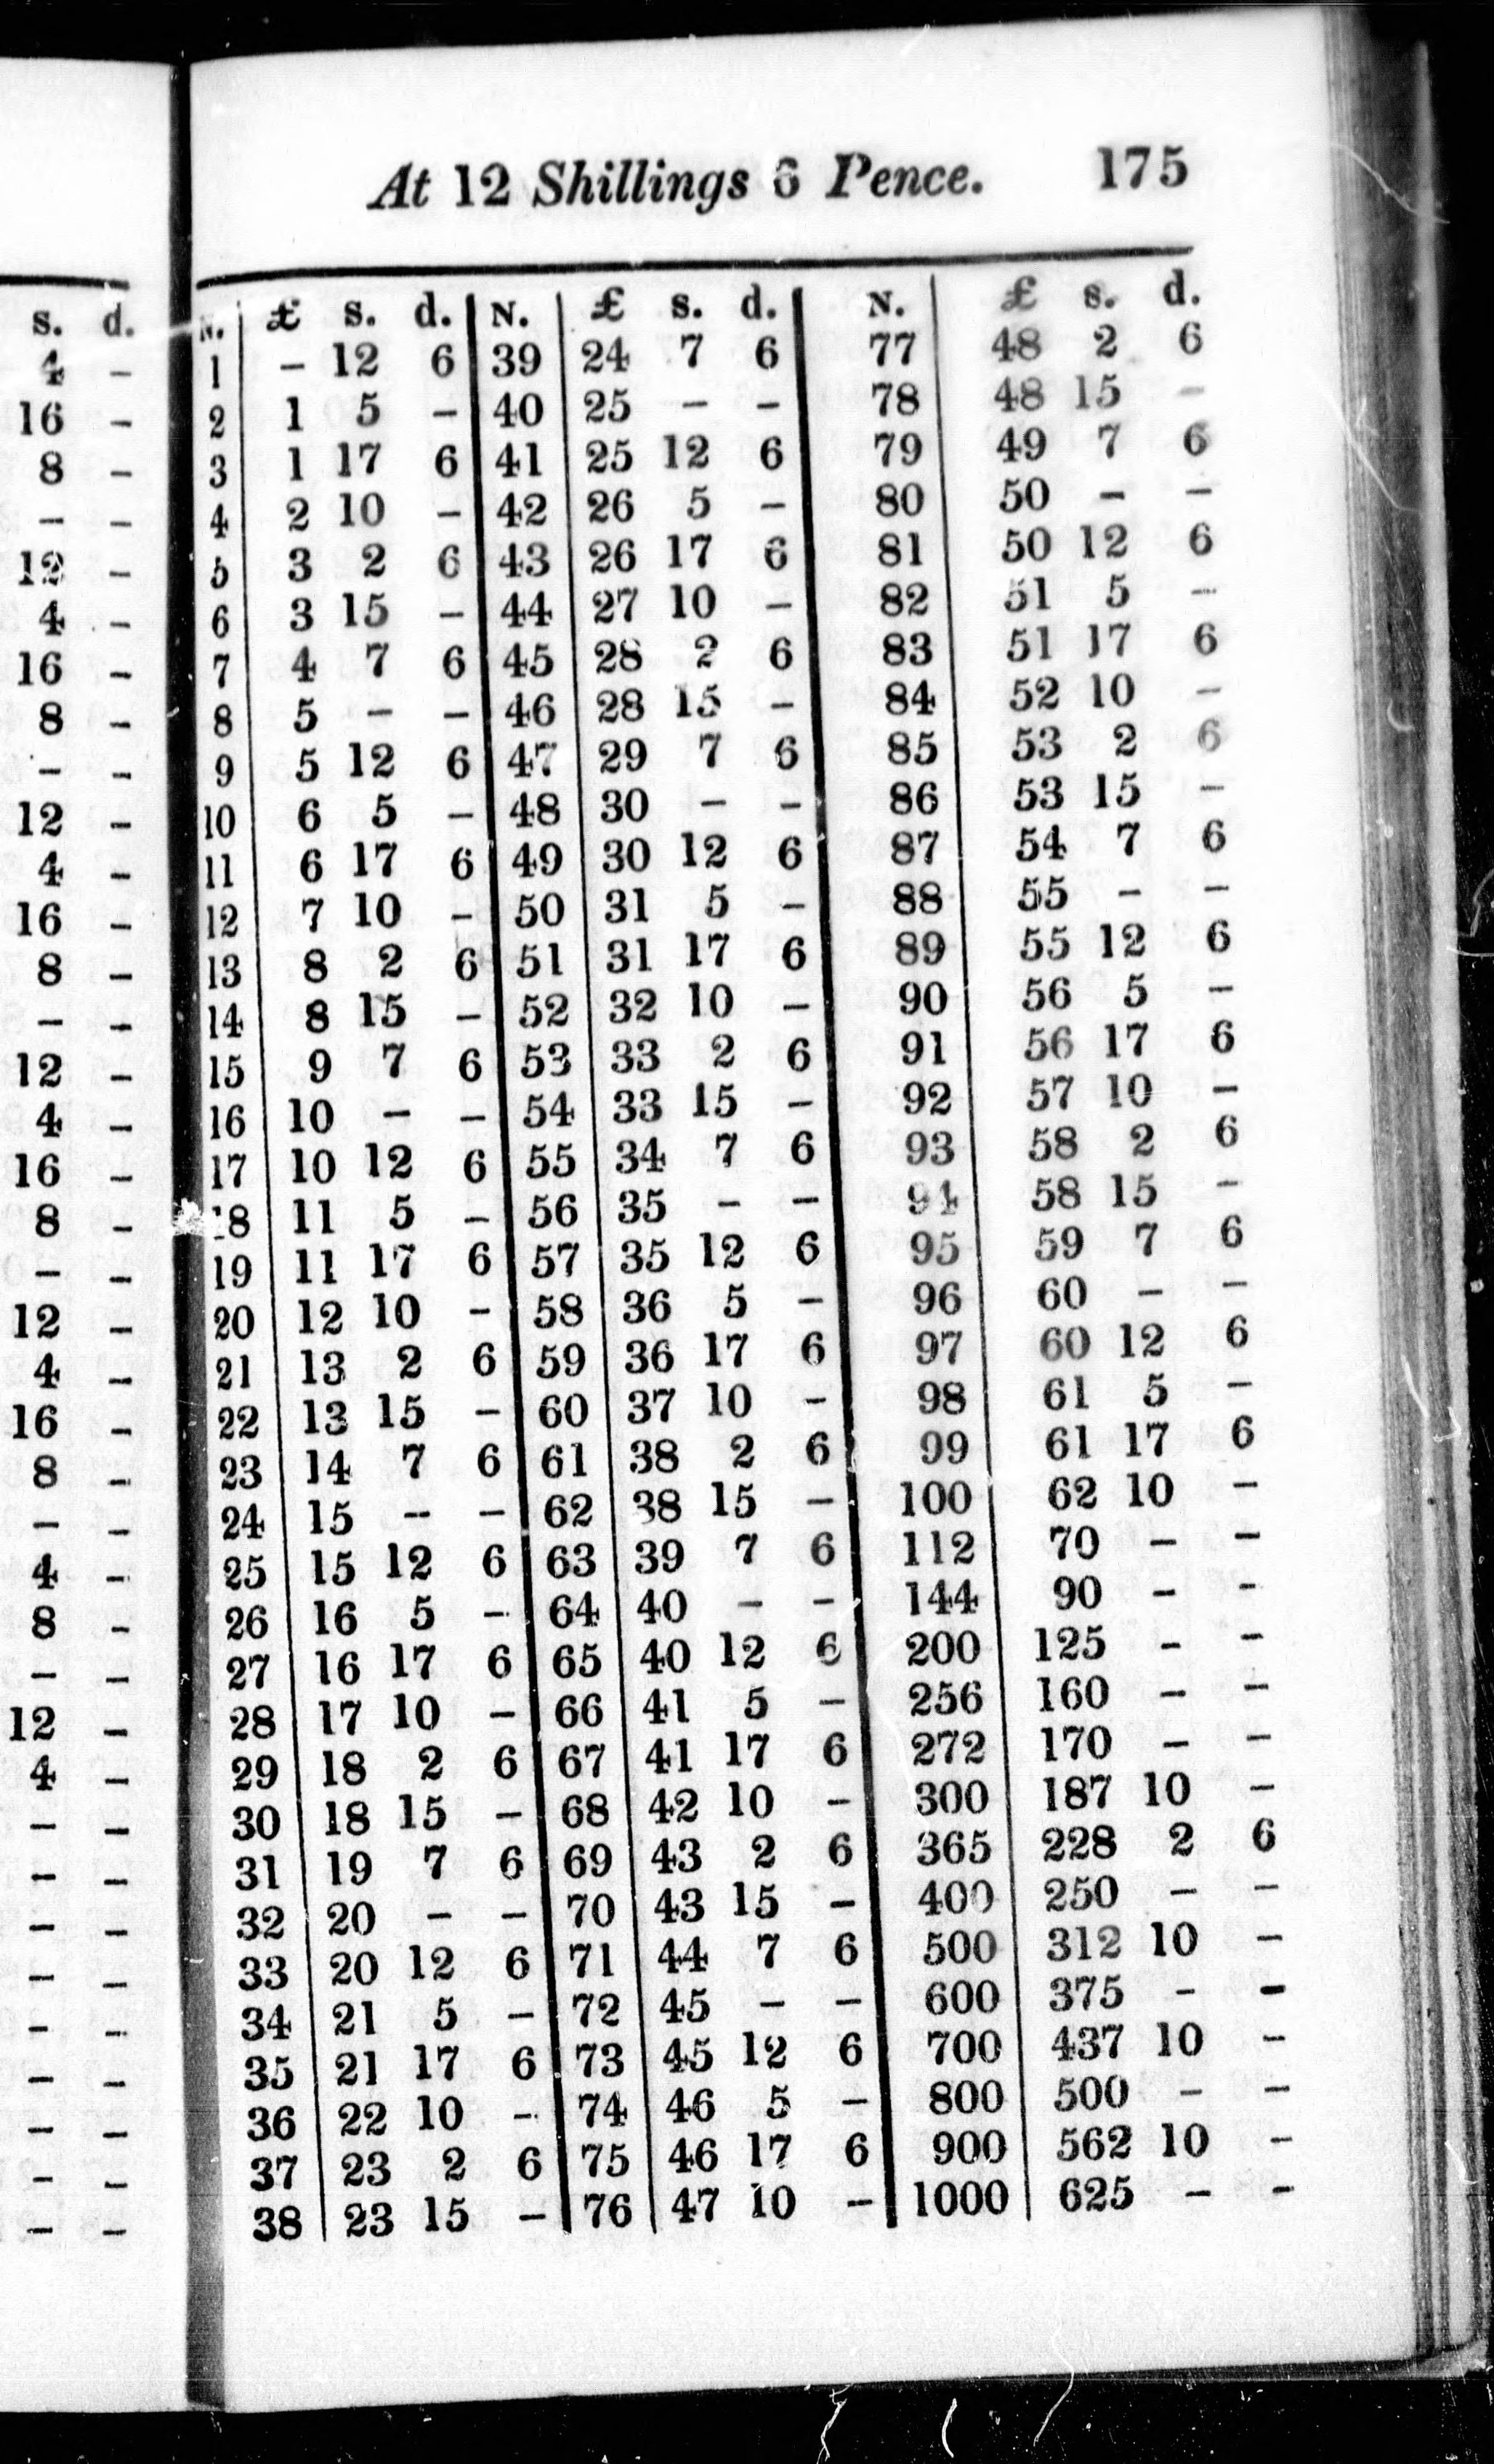 s. d.
4 –
16 –
8 –
– –
12 –
4 –
16 –
8 –
– –
12 –
4 –
16 –
8 –
– –
12 –
4 –
16 –
8 –
– –
12 –
4 –
16 –
8 –
– –
4 –
8 –
– –
12 –
4 –
– –
– –
– –
– –
– –
– –
– –
– –
– –
At 12 Shillings 6 Pence. 175
N. £ s. d. N. £ s. d. N. £ s. d.
1 – 12 6 39 24 7 6 77 48 2 6
2 1 5 – 40 25 – – 78 48 15 –
3 1 17 6 41 25 12 6 79 49 7 6
4 2 10 – 42 26 5 – 80 50 – –
5 3 2 6 43 26 17 6 81 50 12 6
6 3 15 – 44 27 10 – 82 51 5 –
7 4 7 6 45 28 2 6 83 51 17 6
8 5 – – 46 28 15 – 84 52 10 –
9 5 12 6 47 29 7 6 85 53 2 6
10 6 5 – 48 30 – – 86 53 15 –
11 6 17 6 49 30 12 6 87 54 7 6
12 7 10 – 50 31 5 – 88 55 – –
13 8 2 6 51 31 17 6 89 55 12 6
14 8 15 – 52 32 10 – 90 56 5 –
15 9 7 6 53 33 2 6 91 56 17 6
16 10 – – 54 33 15 – 92 57 10 –
17 10 12 6 55 34 7 6 93 58 2 6
18 11 5 – 56 35 – – 94 58 15 –
19 11 17 6 57 35 12 6 95 59 7 6
20 12 10 – 58 36 5 – 96 60 – –
21 13 2 6 59 36 17 6 97 60 12 6
22 13 15 – 60 37 10 – 98 61 5 –
23 14 7 6 61 38 2 6 99 61 17 6
24 15 – – 62 38 15 – 100 62 10 –
25 15 12 6 63 39 7 6 112 70 – –
26 16 5 – 64 40 – – 144 90 – –
27 16 17 6 65 40 12 6 200 125 – –
28 17 10 – 66 41 5 – 256 160 – –
29 18 2 6 67 41 17 6 272 170 – –
30 18 15 – 68 42 10 – 300 187 10 –
31 19 7 6 69 43 2 6 365 228 2 6
32 20 – – 70 43 15 – 400 250 – –
33 20 12 6 71 44 7 6 500 312 10 –
34 21 5 – 72 45 – – 600 375 – –
35 21 17 6 73 45 12 6 700 437 10 –
36 22 10 – 74 46 5 – 800 500 – –
37 23 2 6 75 46 17 6 900 562 10 –
38 23 15 – 76 47 10 – 1000 625 – –